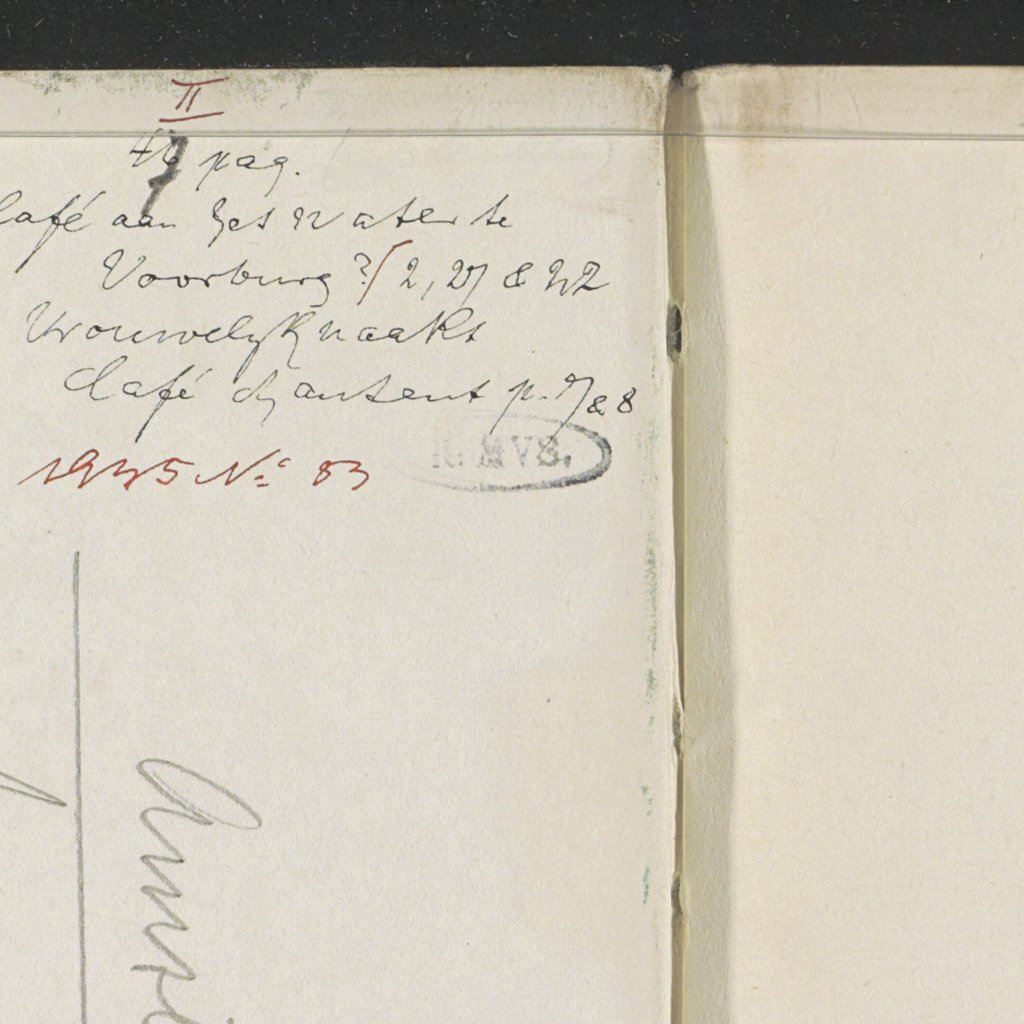 II
46 pag.
Café aan het water te
Voorburg? (2, 27 & 42
Vrouwelijk naakt
Café chantant p. 7 & 8
1935 No 83